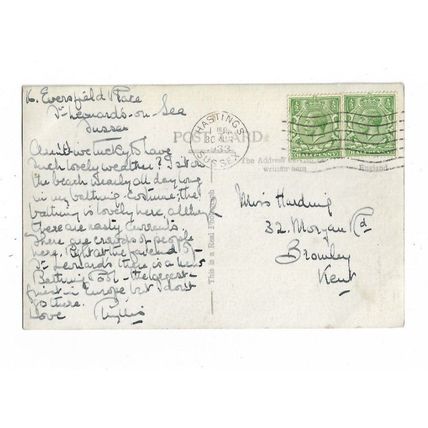 16. Eversfield Place
St Leonards-on-Sea
Sussex
HASTINGS
SUSSEX
20 AUG
1933
POSTCARD
HALFPENNY
HALFPENNY
The Address
England
This is a Real Photograph
Aren't we lucky to have
such lovely weather? I sit on
the beach nearly all day long
in my bathing costume; the
bathing is lovely here, although
there are nasty currents.
There are crowds of people
here. Right at the far end of
St Leonards there is a new
Bathing Pool - the largest
in Europe but I don't
go there.
Love Phyllis
Miss Harding
32. Morgan Rd
Bromley
Kent